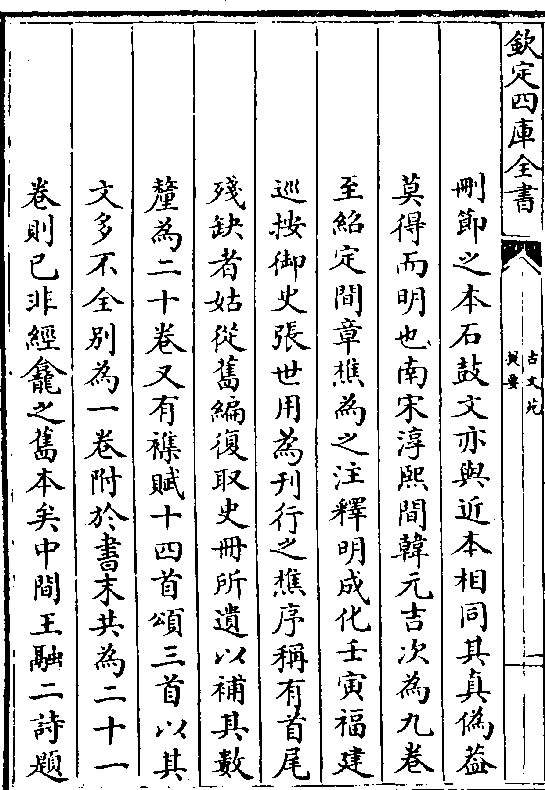 欽定四庫全書
古文苑
提要
一
刪節之本石鼓文亦與近本相同其真偽葢
莫得而明也南宋淳熙間韓元吉次為九卷
至紹定間章樵為之注釋明成化壬寅福建
巡按御史張世用為刋行之樵序稱有首尾
殘缺者姑從舊編復取史冊所遺以補其數
釐為二十卷又有襍賦十四首頌三首以其
文多不全別為一卷附於書末共為二十一
卷則已非經龕之舊本矣中間王融二詩題